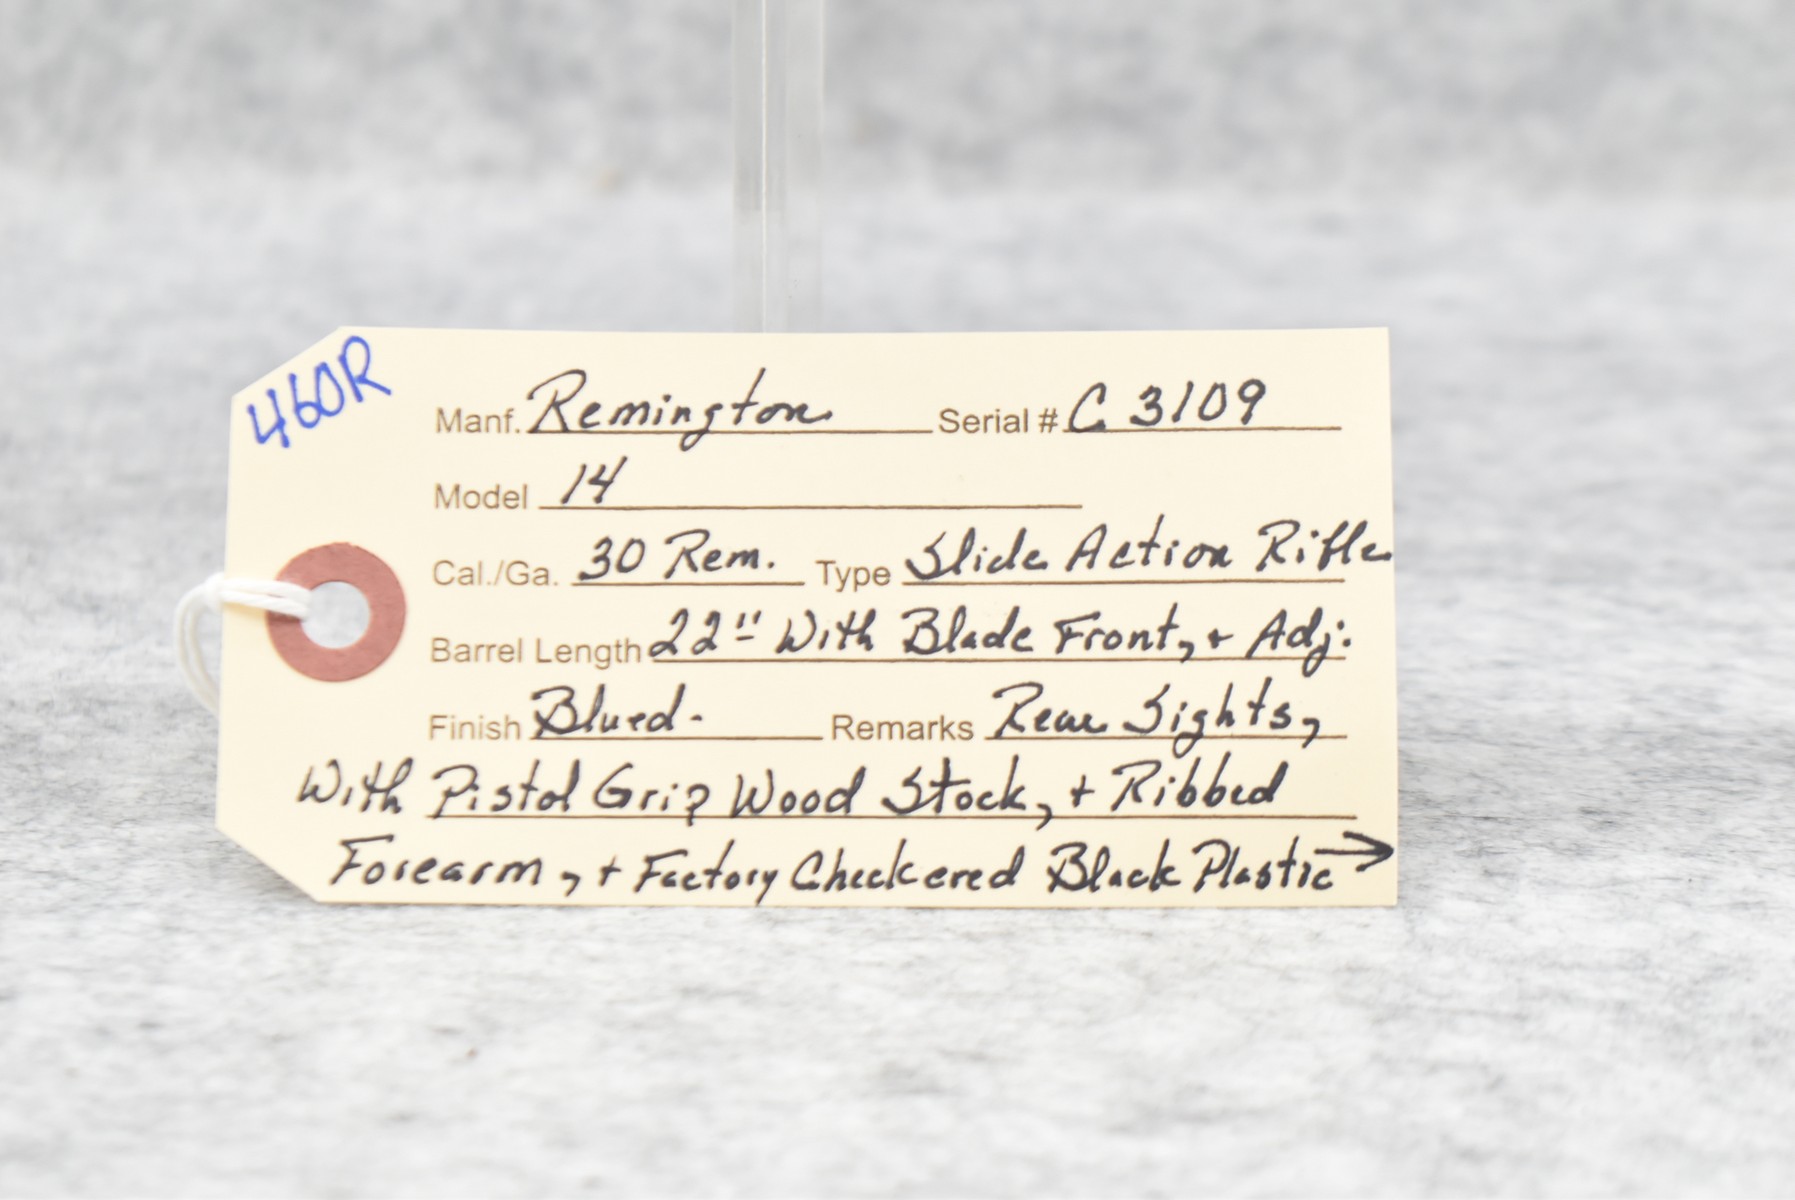 460R
Manf. Remington Serial # C 3109
Model 14
Cal./Ga. 30 Rem. Type Slide Action Rifle
Barrel Length 22" With Blade Front, + Adj.
Finish Blued- Remarks Rear Sights,
With Pistol Grip Wood Stock, + Ribbed
Forearm, + Factory Checkered Black Plastic →